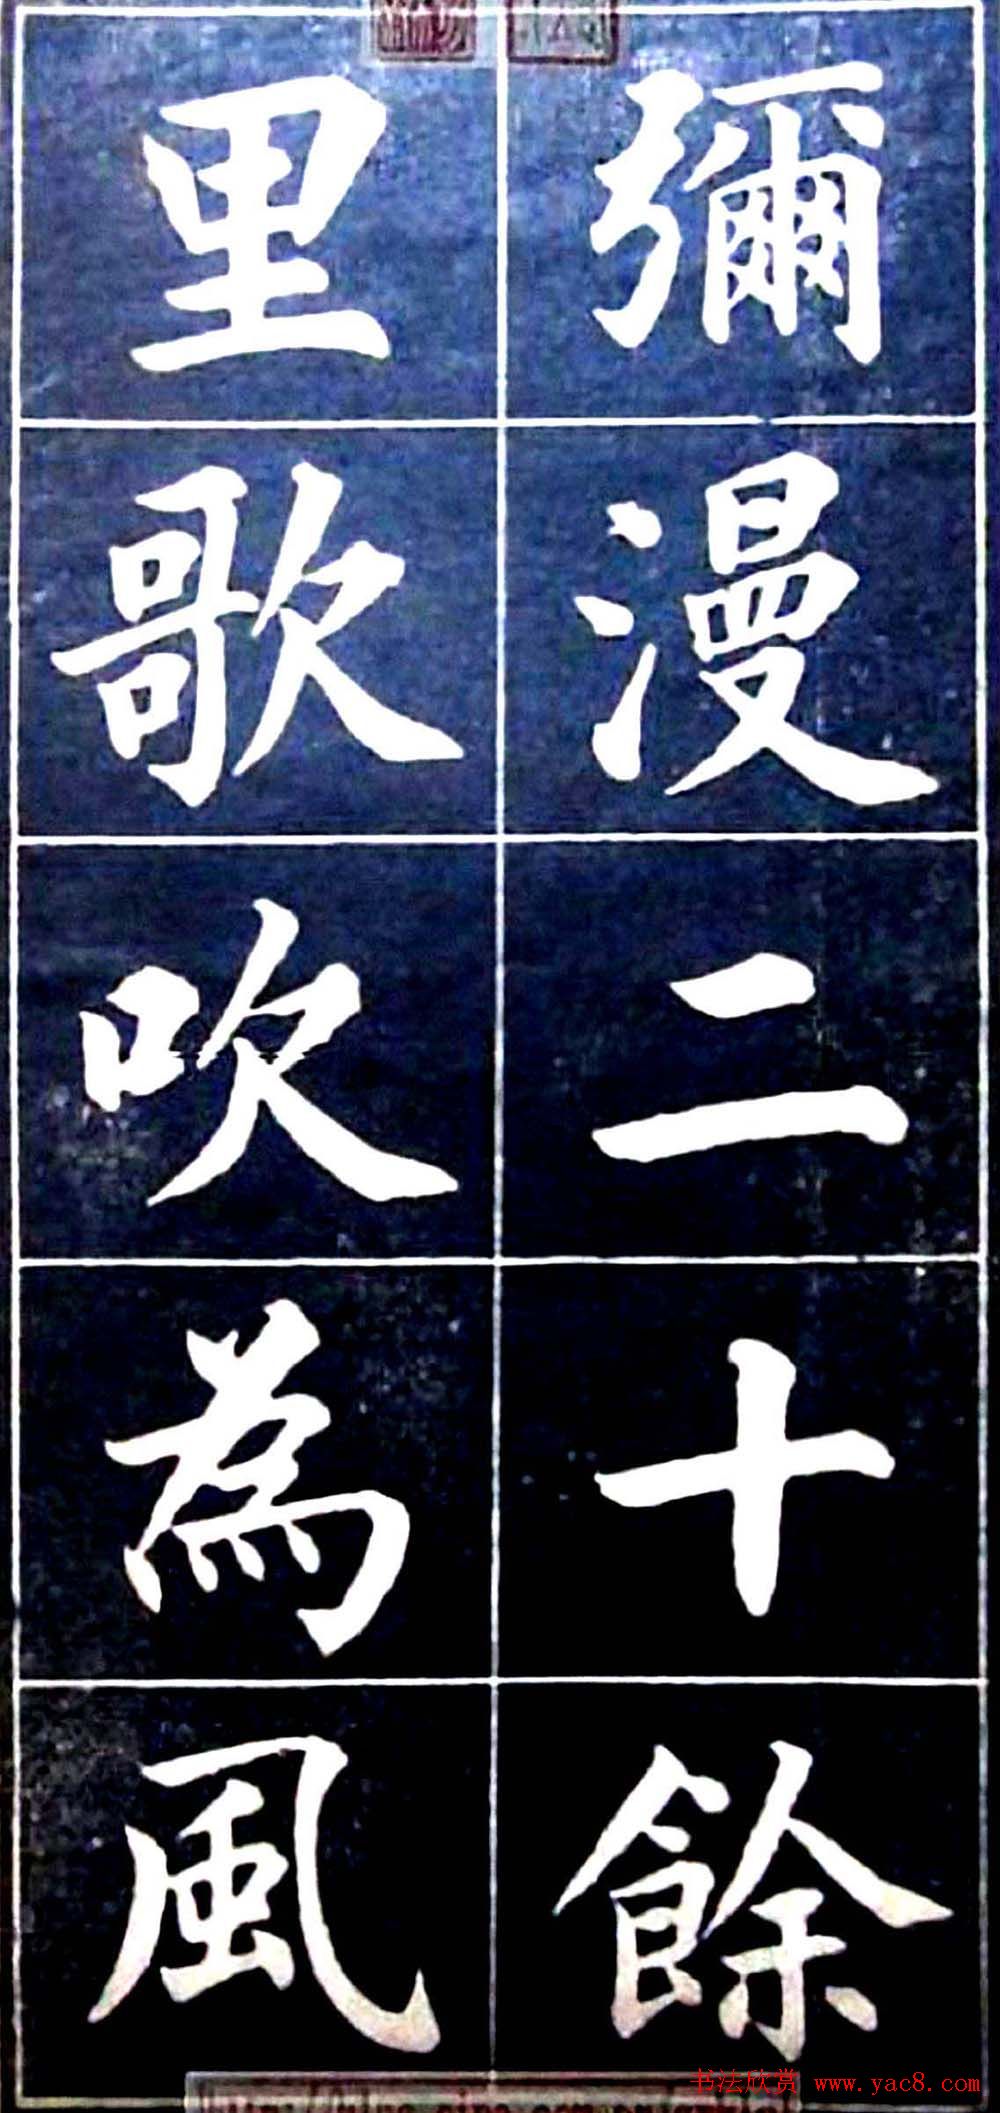 彌漫二十餘
里歌吹為風
书法欣赏 www.yac8.com